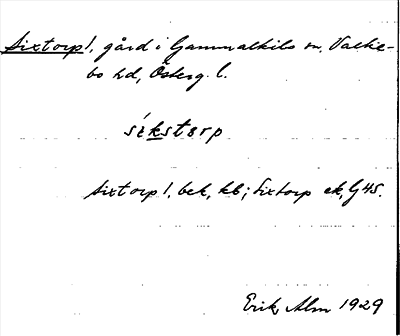 Sixtorp1, gård i Gammalkils sn, Valke-
bo hd, Österg. l.
síkstɵrp
Sixtorp1, bek, kb; Sixtorp ek, G45.
Erik Alm 1929